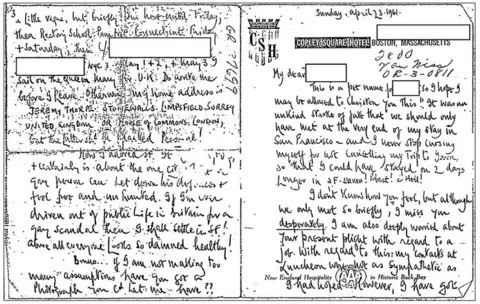 3
a little vague, but briefly: here until Friday;
then Rectory School Pomfret Connecticut Friday
+ Saturday, then
NYC 3. May 1 + 2, + May 3 I
Sail on the Queen Mary U.K. Do write me
before I leave. Otherwise my home address is
JEREMY THORPE: STONEWALLS: LIMPSFIELD: SURREY
UNITED KINGDOM or HOUSE OF COMMONS, LONDON,
but the latter should be marked Personal!
How I adored SF. It
certainly is about the one city
gay person can let down his defences +
feel free and un hunted. If I'm ever
driven out of public life in Britain for a
gay scandal then I shall settle in SF!
above all everyone looks so damned healthy!
Bruno. If I am not making too
many assumptions have you got a
Photograph you cd let me have??
GR 7 7659
Sunday, April 23. 1961.
CSH
COPLEY SQUARE HOTEL BOSTON, MASSACHUSETTS
2800
Van Ness
OR-3-0811
My dear
This is a pet name so I hope I
may be allowed to christen you this! It was an
unkind stroke of fate that we should only
have met at the very end of my stay in
San Francisco - and I never stop cursing
myself for not cancelling my trip to
so that I could have stayed on 2 days
longer in S.F. Damn! Blast! & Hell!
I don't know how you feel, but although
we only met so briefly, I miss you
desperately. I am also deeply worried about
your present plight with regard to a
job. With regard to this: my contacts at
Luncheon were not as sympathetic as
I had hoped. However, I have got
New England Hospitality in Historic Back Bay